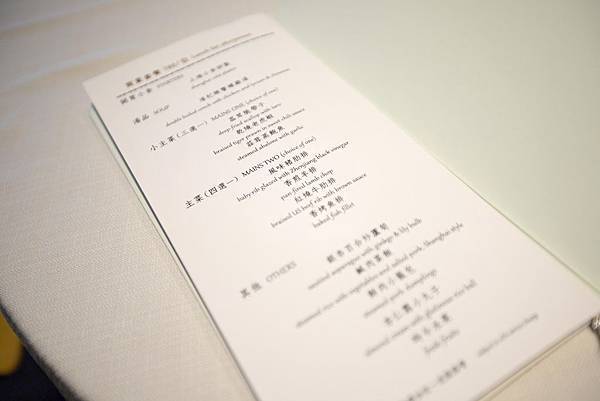 開胃小食 STARTERS
湯品 SOUP
double boiled conch with chicken and
小主菜 (三選一) MAINS ONE (choice of one)
deep fried scallop with taro
乾燒老虎蝦
braised tiger prawn in sweet chili sauce
蒜茸蒸鮑魚
steamed abalone with garlic
主菜 (四選一) MAINS TWO (choice of one)
風味豬肋排
baby rib glazed with Zhenjiang black vinegar
香煎羊排
pan-fried lamb chop
紅燒牛肋排
braised US beef rib with brown sauce
香烤魚排
baked fish fillet
其他 OTHERS
銀杏百合炒蘆筍
sautéed asparagus with ginkgo & lily bulb
鹹肉菜飯
steamed rice with vegetables and salted pork, Shanghai style
鮮肉小籠包
steamed pork dumplings
杏仁露小丸子
almond cream with glutinous rice ball
時令水果
fresh fruits